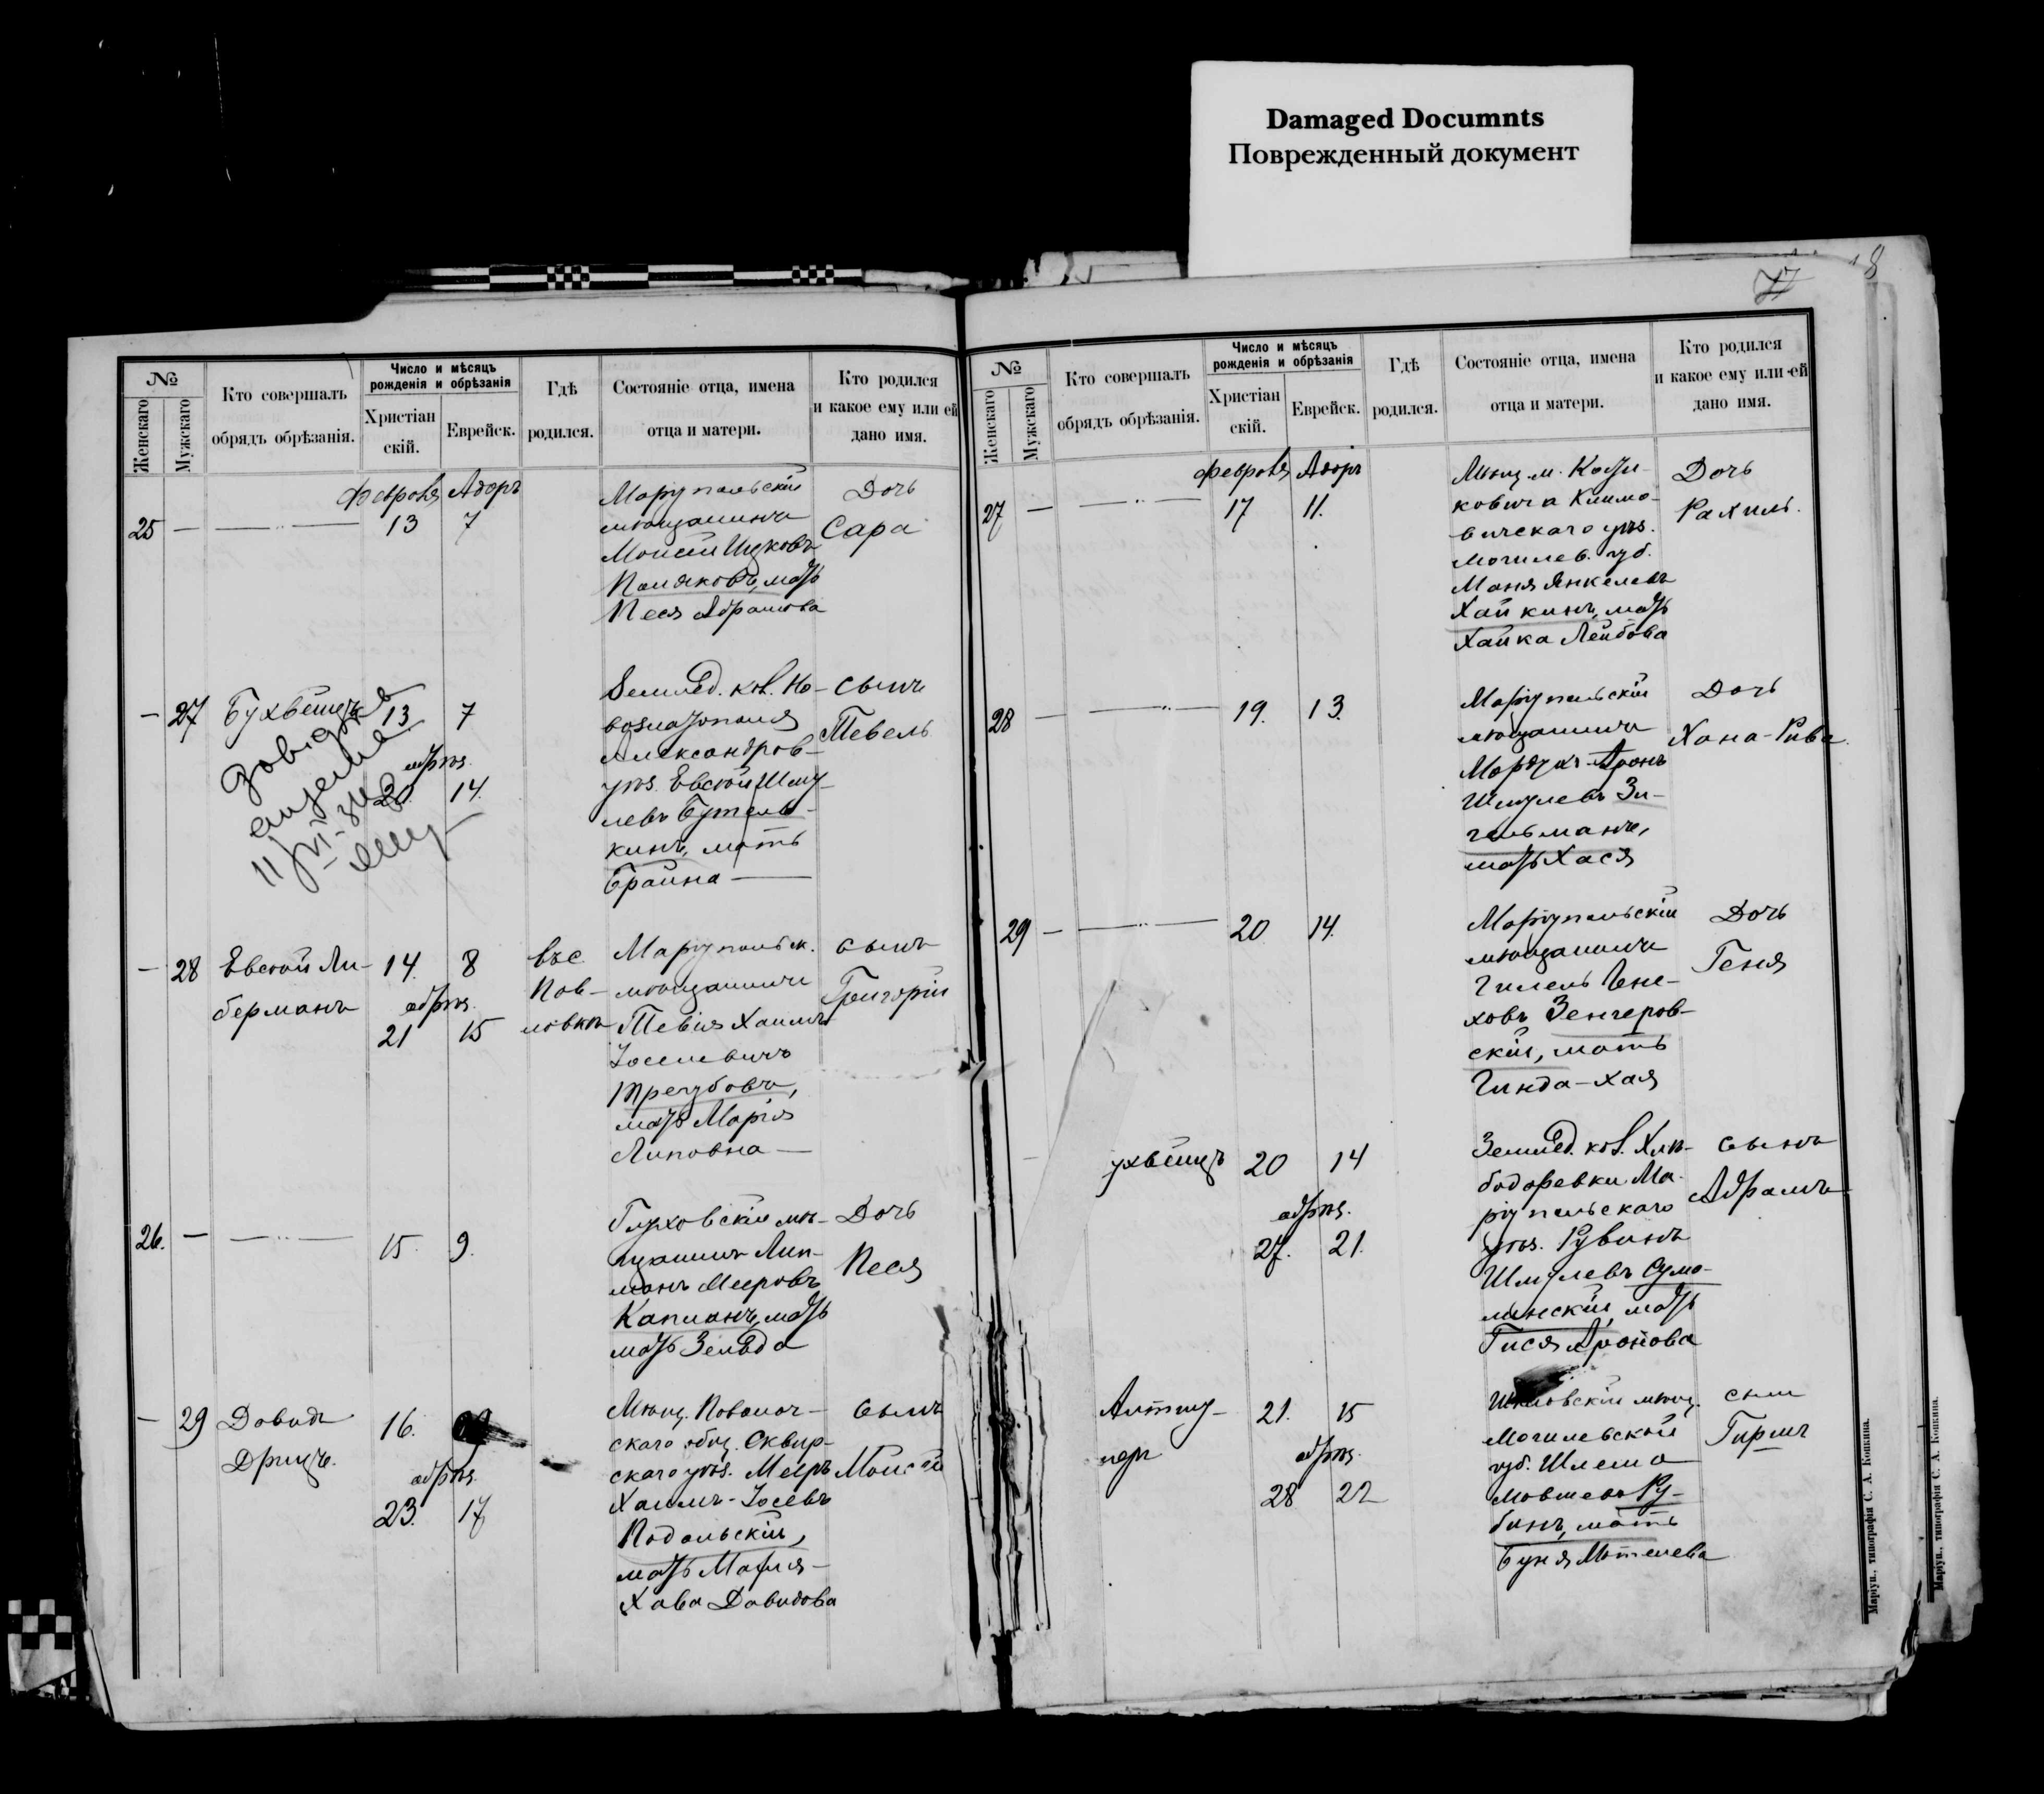 Damaged Documnts
Поврежденный документ
18
№
Женскаго
Мужскаго
Кто совершалъ
обрядъ обрѣзанія.
Число и мѣсяцъ
рожденія и обрѣзанія
Христіан
скій.
Еврейск.
Гдѣ
родился.
Состояніе отца, имена
отца и матери.
Кто родился
и какое ему или ей
дано имя.
Февраля Адоръ
25 — — 13 7
Маріупольскій
мѣщанинъ
Моисей Ицковъ
Поляковъ, мать
Песя Абрамова
Дочь
Сара
— 27 Бухвейцъ 13 7
обрѣз.
20 14.
11/VI-
Землед. кол. Но-
возлатополя
Александров-
уѣз. Евсей Шму-
левъ Бутель-
кинъ, мать
Брайна —
сынъ
Тевель
— 28 Евсей Ли-
берманъ
14. 8
обрѣз.
21 15
въ с
Пав-
ловкѣ
Маріупольск.
мѣщанинъ
Тевія Хаимъ
Іоселевичъ
Трегубовъ,
мать Марія
Липовна —
сынъ
Григорій
26. — — 15. 9.
Глуховскій мѣ-
щанинъ Лип-
манъ Мееровъ
Капланъ, мать
мать Зельда
Дочь
Песя
— 29 Давидъ
Дрицъ.
16.
обрѣз.
23. 17
Мѣщ. Паволоч-
скаго общ. Сквир-
скаго уѣз. Мееръ
Хаимъ-Іосевъ
Подольскій,
мать Марія-
Хава Давидова
Сынъ
Моисей
№
Женскаго
Мужскаго
Кто совершалъ
обрядъ обрѣзанія.
Число и мѣсяцъ
рожденія и обрѣзанія
Христіан
скій.
Еврейск.
Гдѣ
родился.
Состояніе отца, имена
отца и матери.
Кто родился
и какое ему или ей
дано имя.
Февраля Адоръ
27 — — 17 11.
Мѣщ. м.
Климо-
вичскаго уѣз.
Могилев. губ.
Маня Янкелевъ
Хайкинъ, мать
Хайка Лейбова
Дочь
Рахиль.
28 — — 19. 13.
Маріупольскій
мѣщанинъ
Мордухъ-Аронъ
Шмулевъ Зи-
гельманъ,
мать Хася
Дочь
Хана-Рива.
29 — — 20 14.
Маріупольскій
мѣщанинъ
Гилель Гене-
ховъ Зенгеров-
скій, мать
Гинда-Хая
Дочь
Геня
ухвейцъ 20 14
обрѣз.
27. 21.
Землед. кол. Хлѣ-
бодаровки Ма-
ріупольскаго
уѣз. Рувинъ
Шмулевъ Сума-
линскій, мать
Гися Аронова
Сынъ
Абрамъ
21. 15
обрѣз.
28 22
Шкловскій мѣщ.
Могилевской
губ. Шлема
Мовшевъ Ру-
бинъ, мать
Буня Мотелева
сынъ
Гиршъ
Маріуп., типографія С. А. Копкина.
Маріуп., типографія С. А. Копкина.